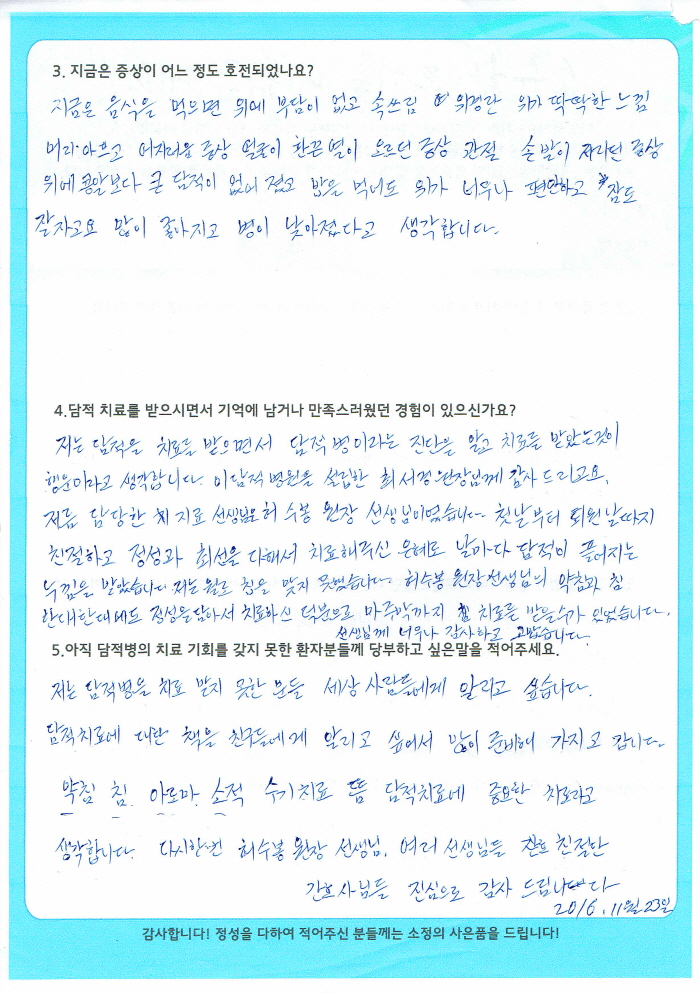 3. 지금은 증상이 어느 정도 호전되었나요?
지금은 음식을 먹으면 위에 부담이 없고 속쓰림 위경련 위가 딱딱한 느낌
머리 아프고 어지러움 증상 얼굴이 화끈 열이 오르던 증상 관절 손발이 저리던 증상
위에 콩알보다 큰 담적이 없어 졌고 밥을 먹어도 위가 너무나 편안하고 잠도
잘자고요 많이 좋아지고 병이 낳아졌다고 생각합니다.
4.담적 치료를 받으시면서 기억에 남거나 만족스러웠던 경험이 있으신가요?
저는 담적을 치료를 받으면서 담적병이라는 진단을 알고 치료를 받았는것이
행운이라고 생각합니다. 이담적 병원을 설립한 최서경 원장님께 감사드리고요.
저를 담당한 치료 선생님은 허수봉 원장 선생님이였습니다. 첫날부터 퇴원날까지
친절하고 정성과 최선을 다해서 치료해주신 은혜로 날마다 담적이 풀어지는
느낌을 받았습니다 저는 침을 맞지 못했습니다. 허수봉 원장선생님의 약침과 침
한대한대에도 정성을 담아서 치료하신 덕분으로 마주막까지 치료를 받을수가 있었습니다.
선생님께 너무나 감사하고 고맙습니다.
5.아직 담적병의 치료 기회를 갖지 못한 환자분들께 당부하고 싶은말을 적어주세요.
저는 담적병을 치료 받지 못한 분들 세상 사람들에게 알리고 싶습니다.
담적치료에 대한 책을 친구들에게 알리고 싶어서 많이 준비해 가지고 갑니다.
약침 침. 아로마. 소적 수기치료 뜸 담적치료에 중요한 치료라고
생각합니다. 다시한번 허수봉 원장 선생님, 여러 선생님들 친절한
간호사님들 진심으로 감사 드립니다
2016. 11월 23일
감사합니다! 정성을 다하여 적어주신 분들께는 소정의 사은품을 드립니다!